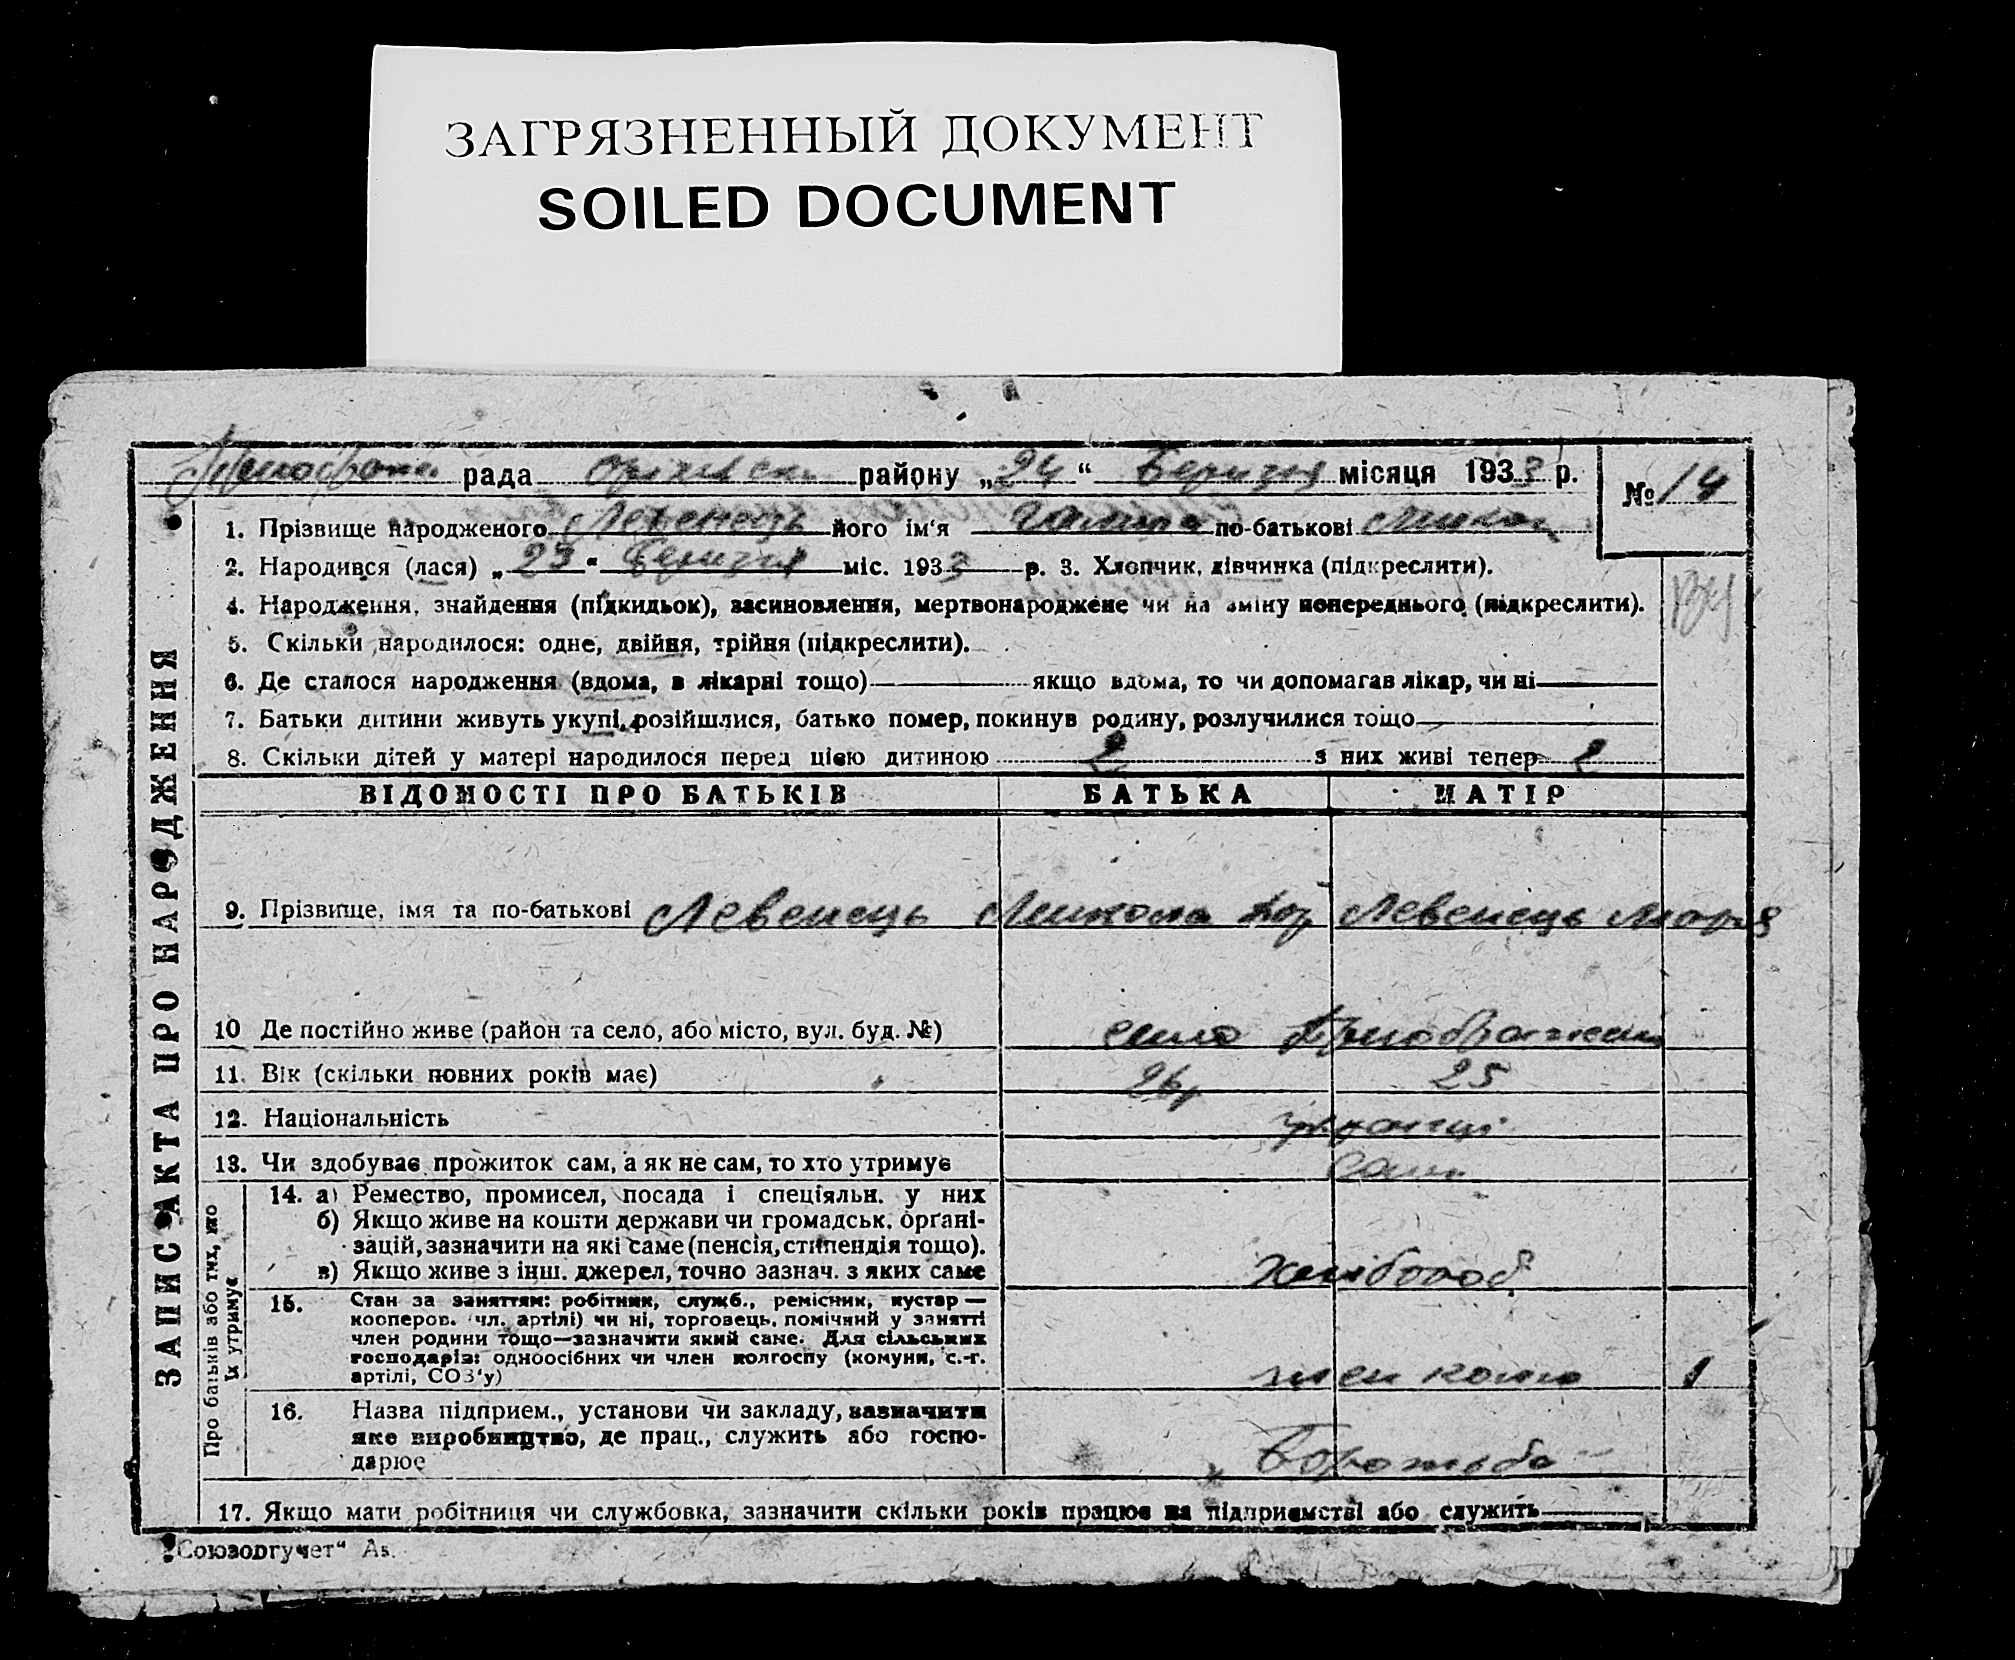 ЗАГРЯЗНЕННЫЙ ДОКУМЕНТ
SOILED DOCUMENT
рада району „24“ Березня місяця 1933 р.
№ 14
1. Прізвище народженого Левенець його ім‘я Галина по-батькові Микол
2. Народився (лася) „23“ Березня міс. 1933 р. 3. Хлопчик, дівчинка (підкреслити).
4. Народження, знайдення (підкидьок), засиновлення, мертвонароджене чи на зміну попереднього (підкреслити).
5. Скільки народилося: одне, двійня, трійня (підкреслити).
6. Де сталося народження (вдома, в лікарні тощо) якщо вдома, то чи допомагав лікар, чи ні
7. Батьки дитини живуть укупі, розійшлися, батько помер, покинув родину, розлучилися тощо
8. Скільки дітей у матері народилося перед цією дитиною 2 з них живі тепер 2
ЗАПИС АКТА ПРО НАРОДЖЕННЯ
ВІДОМОСТІ ПРО БАТЬКІВ БАТЬКА МАТІР
9. Прізвище, імя та по-батькові Левенець Микола Левенець Марія
10 Де постійно живе (район та село, або місто, вул. буд. №) село
11. Вік (скільки повних років має) 26р 25
12. Національність українці
13. Чи здобуває прожиток сам, а як не сам, то хто утримує сами
Про батьків або тих, хто їх утримує
14. а) Ремество, промисел, посада і спеціяльн. у них
б) Якщо живе на кошти держави чи громадськ. органі-
зацій, зазначити на які саме (пенсія, стипендія тощо).
в) Якщо живе з інш. джерел, точно зазнач. з яких саме Хлібороб
15. Стан за заняттям: робітник, служб., ремісник, кустар —
кооперов. (чл. артілі) чи ні, торговець, помічний у занятті
член родини тощо—зазначити який саме. Для сільських
господарів: одноосібних чи член колгоспу (комуни, с.-г.
артілі, СОЗ‘у) член 1
16. Назва підприєм., установи чи закладу, зазначити
яке виробництво, де прац., служить або госпо-
дарює Боротьба
17. Якщо мати робітниця чи службовка, зазначити скільки років працює на підприємстві або служить
„Союзоргучет“